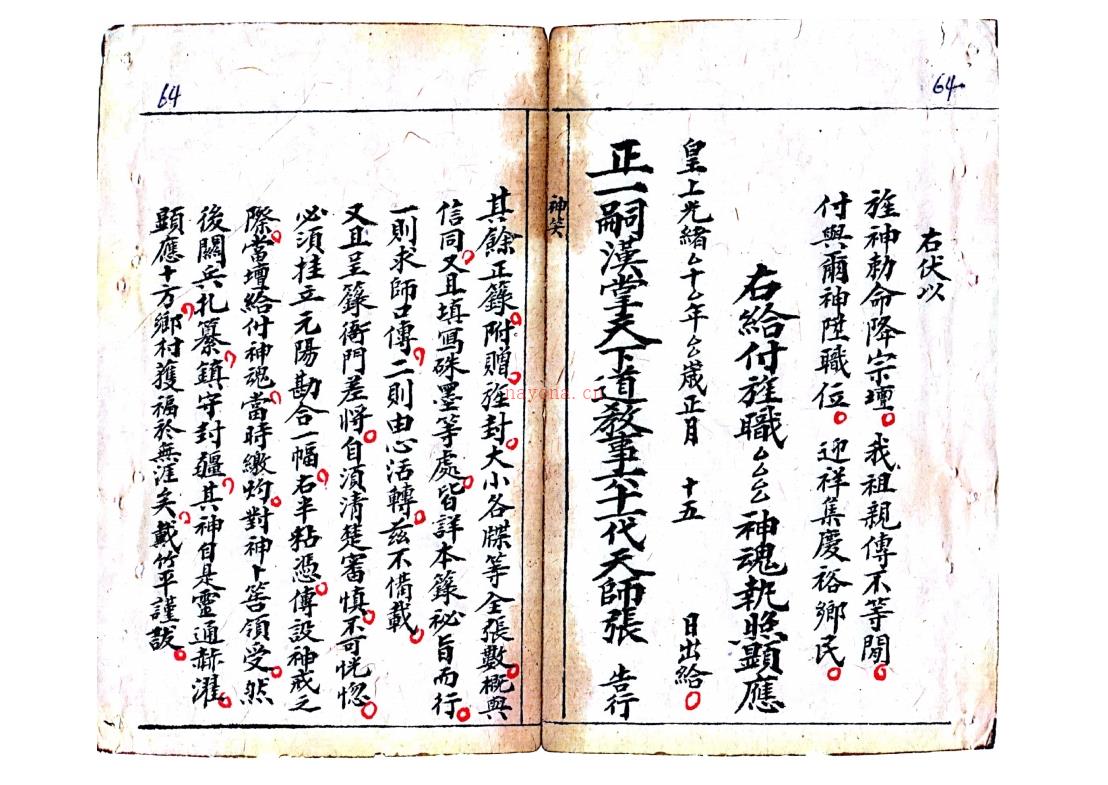 64
右伏以
旌神勅命降宗壇。我祖親傳不等閒。
付與爾神陞職位。迎祥集慶裕鄉民。
右給付旌職厶厶厶神魂執照顯應
皇上光緒厶十厶年厶厶歲正月 十五 日出給。
正一嗣漢掌天下道教事六十一代天師張 告行
神笑
64
其餘正籙。附贈。旌封。大小各牒等全張數。概與
信同。又且填寫硃墨等處。皆詳本籙祕旨而行。
一則求師口傳。二則由心活轉。茲不備載。
又且呈籙衙門差將。自須清楚審慎。不可恍惚。
必須挂立元陽勘合一幅。右半粘憑。傳設神戒之
際。當壇給付神魂。當時繳灼。對神卜筶領受。然
後關兵札纂。鎮守封疆。其神自是靈通赫濯。
顯應十方。鄉村獲福於無涯矣。戴竹平謹誌。
nayona.cn